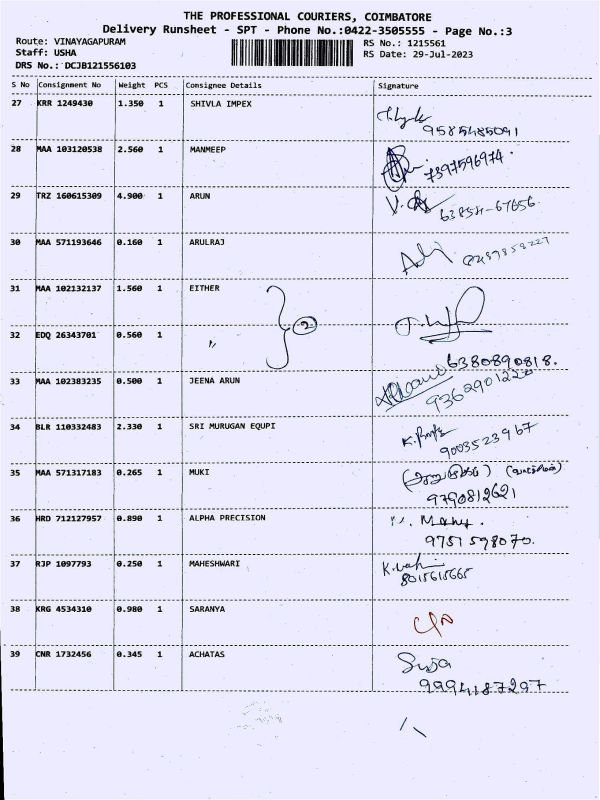 THE PROFESSIONAL COURIERS, COIMBATORE
Delivery Runsheet - SPT - Phone No.:0422-3505555 - Page No.:3
Route: VINAYAGAPURAM RS No.: 1215561
Staff: USHA RS Date: 29-Jul-2023
DRS No.: DCJB121556103
S No Consignment No Weight PCS Consignee Details Signature
27 KRR 1249430 1.350 1 SHIVLA IMPEX
9585485091
28 MAA 103120538 2.560 1 MANMEEP
7397596974.
29 TRZ 160615309 4.900 1 ARUN
63854-67656
30 MAA 571193646 0.160 1 ARULRAJ
31 MAA 102132137 1.560 1 EITHER
2
32 EDQ 26343701 0.560 1 "
6380890818.
33 MAA 102383235 0.500 1 JEENA ARUN
34 BLR 110332483 2.330 1 SRI MURUGAN EQUPI
9003523967
35 MAA 571317183 0.265 1 MUKI
9790812621
36 HRD 712127957 0.890 1 ALPHA PRECISION
9751598070.
37 RJP 1097793 0.250 1 MAHESHWARI
8015615665
38 KRG 4534310 0.980 1 SARANYA
39 CNR 1732456 0.345 1 ACHATAS
Suja
9994187297